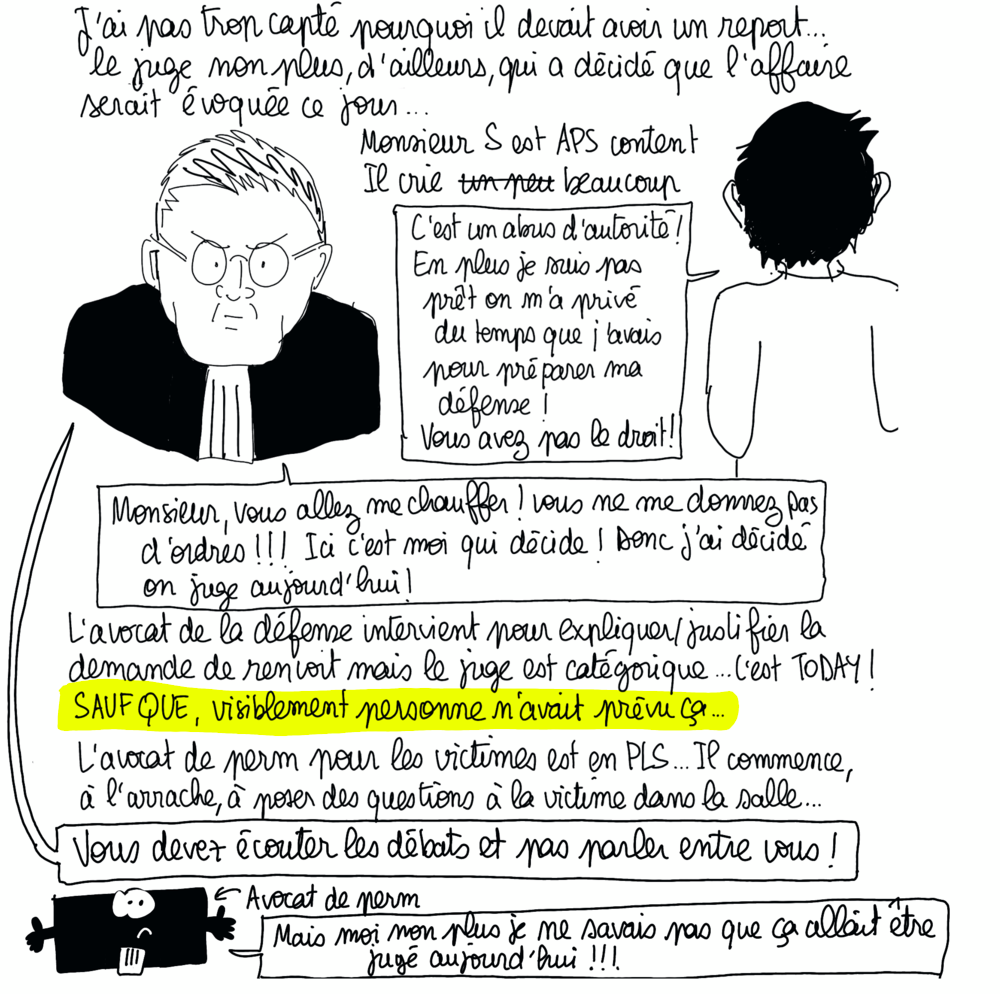 J'ai pas trop capté pourquoi il devait avoir un report...
le juge non plus, d'ailleurs, qui a décidé que l'affaire
serait évoquée ce jour...
Monsieur S est APS content
Il crie un peu beaucoup
C'est un abus d'autorité!
En plus je suis pas
prêt on m'a privé
du temps que j'avais
pour préparer ma
défense!
Vous avez pas le droit!
Monsieur, vous allez me chauffer! vous ne me donnez pas
d'ordres!!! Ici c'est moi qui décide! Donc j'ai décidé
on juge aujourd'hui!
L'avocat de la défense intervient pour expliquer/justifier la
demande de renvoit mais le juge est catégorique... C'est TODAY!
SAUF QUE, visiblement personne n'avait prévu ça...
L'avocat de perm pour les victimes est en PLS... Il commence,
à l'arrache, à poser des questions à la victime dans la salle...
Vous devez écouter les débats et pas parler entre vous!
Avocat de perm
Mais moi non plus je ne savais pas que ça allait être
jugé aujourd'hui!!!